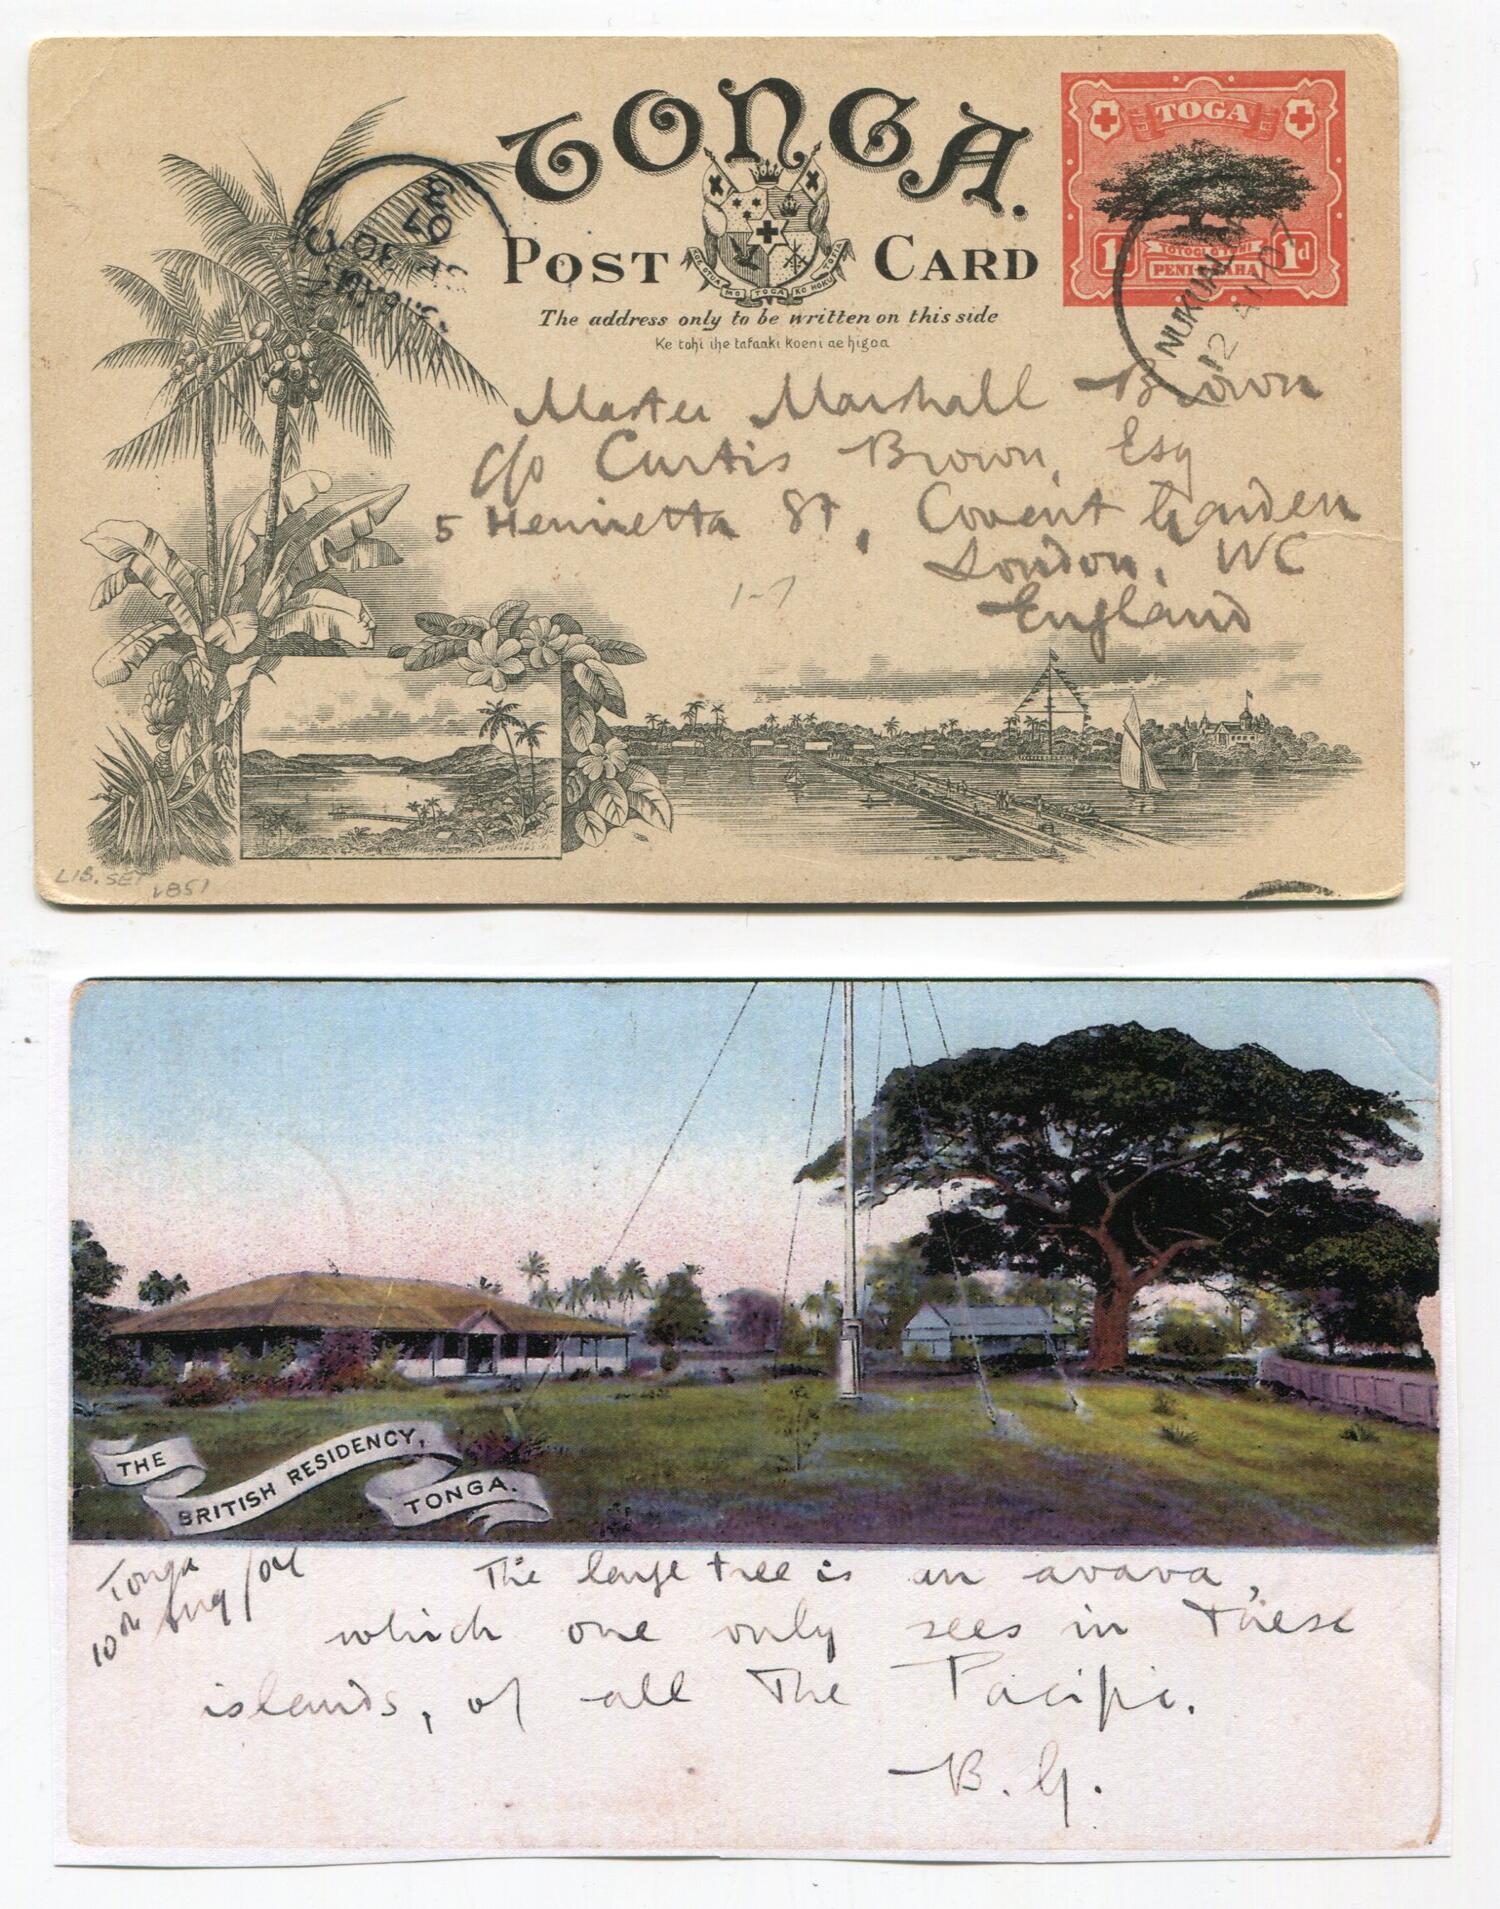 TONGA.
POST CARD
TOGA
MO TOGA KO HOKU
1d
1d
The address only to be written on this side
Ke tohi ihe tafaaki koeni ae higoa
12 07
Master Marshall Brown
c/o Curtis Brown, Esq
5 Henrietta St, Covent Garden
London, WC
England
1-7
LIB. SET
1851
THE
BRITISH RESIDENCY,
TONGA.
Tonga
10th Aug/07
The large tree is an avava,
which one only sees in these
islands, of all the Pacific.
B. G.